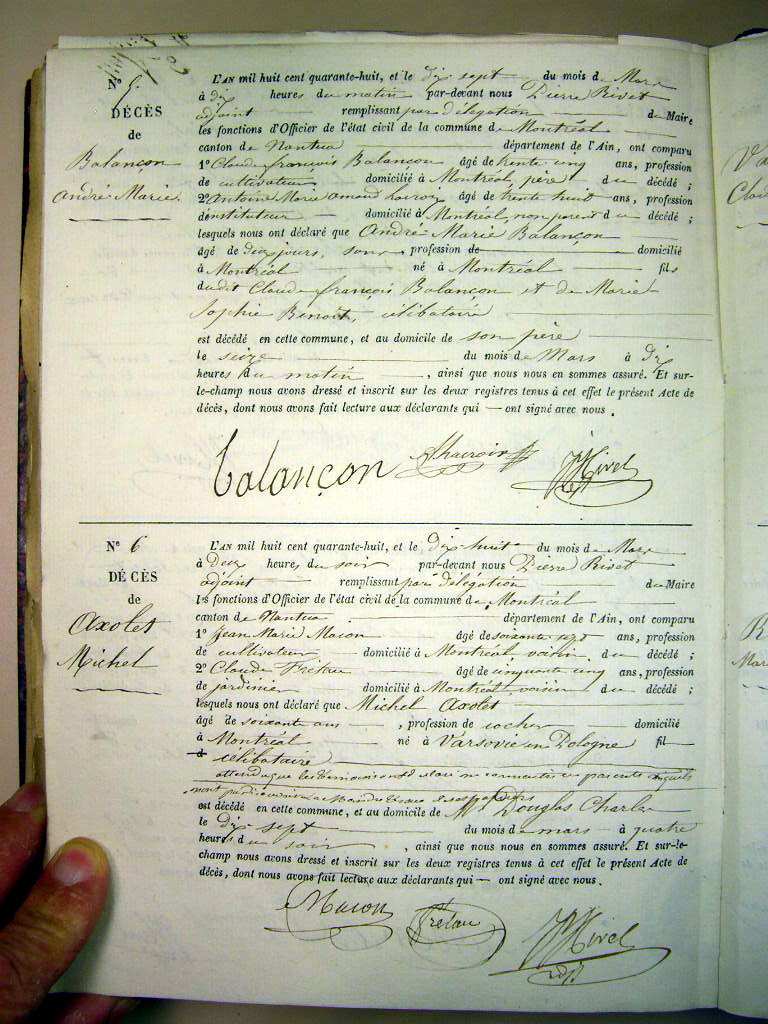 N° 5.
DÉCÈS
de
Balançon
André Marie
L'AN mil huit cent quarante-huit, et le dix sept du mois de Mars
à dix heures du matin par-devant nous Pierre Rivet
adjoint remplissant par délégation du Maire
les fonctions d'Officier de l'état civil de la commune de Montréal
canton de Nantua département de l'Ain, ont comparu
1° Claude françois Balançon âgé de trente cinq ans, profession
de cultivateur domicilié à Montréal, père du décédé ;
2° Antoine Marie amand âgé de trente huit ans, profession
d'instituteur domicilié à Montréal, non parent du décédé ;
lesquels nous ont déclaré que André Marie Balançon
âgé de dix jours, sans profession de domicilié
à Montréal né à Montréal fils
du dit Claude françois Balançon et de Marie
Sophie Benoit, célibataire
est décédé en cette commune, et au domicile de son père
le seize du mois de Mars à dix
heures du matin, ainsi que nous nous en sommes assuré. Et sur-
le-champ nous avons dressé et inscrit sur les deux registres tenus à cet effet le présent Acte de
décès, dont nous avons fait lecture aux déclarants qui — ont signé avec nous.
Balançon
N° 6
DÉCÈS
de
Axolet
Michel
L'AN mil huit cent quarante-huit, et le dix huit du mois de Mars
à deux heures du soir par-devant nous Pierre Rivet
adjoint remplissant par délégation du Maire
les fonctions d'Officier de l'état civil de la commune de Montréal
canton de Nantua département de l'Ain, ont comparu
1° Jean Marie Macon âgé de soixante sept ans, profession
de cultivateur domicilié à Montréal voisin du décédé ;
2° Claude âgé de cinquante cinq ans, profession
de jardinier domicilié à Montréal, voisin du décédé ;
lesquels nous ont déclaré que Michel Axolet
âgé de soixante ans, profession de cocher domicilié
à Montréal né à Varsovie en Pologne fil
célibataire
est décédé en cette commune, et au domicile de Mr Douglas Charles
le dix sept du mois de mars à quatre
heures du soir, ainsi que nous nous en sommes assuré. Et sur-le-
champ nous avons dressé et inscrit sur les deux registres tenus à cet effet le présent Acte de
décès, dont nous avons fait lecture aux déclarants qui — ont signé avec nous.
Macon